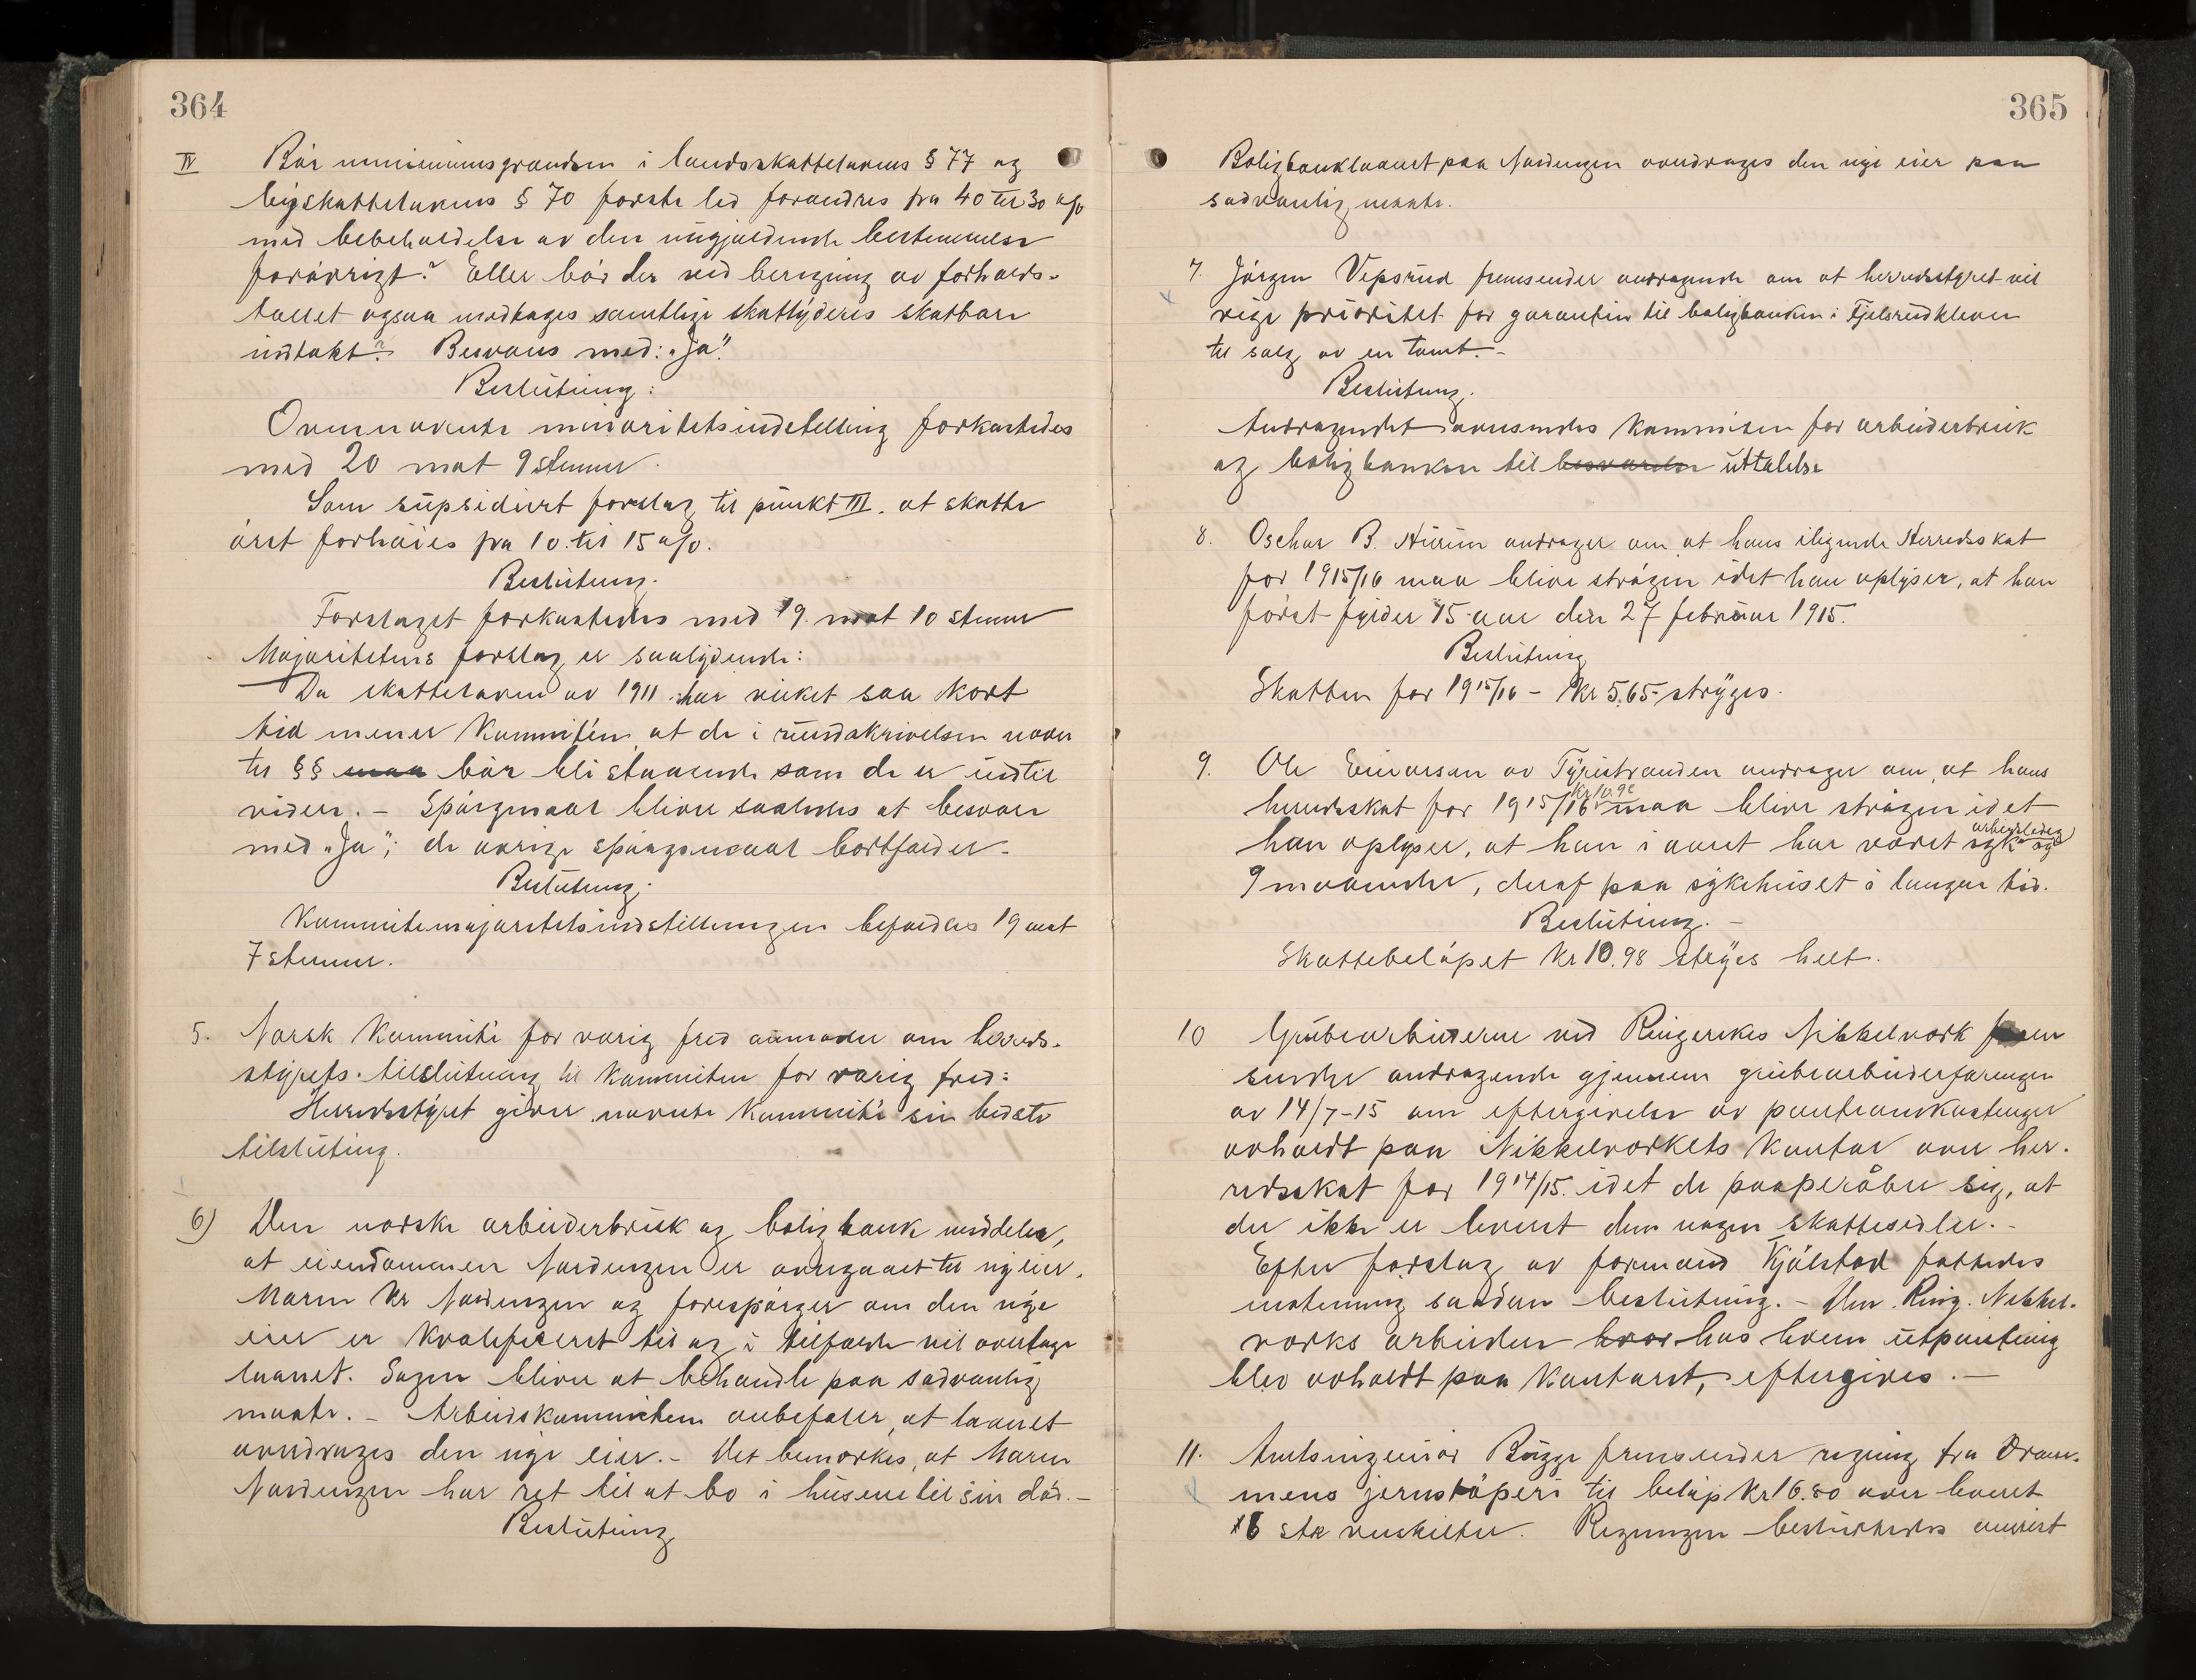 364
IV Bör minimumsgrændsen i landsskattelovens § 77 og
byskattelovens § 70 første led forandres fra 40 til 30 o/o
med bebeholdelse av den nugjældende bestemmelse
forøvrigt? Eller bör der ved beregning av forholds-
tallet ogsaa medtages samtlige skattyderes skatbare
indtækt? Besvares med: "Ja".
Beslutning:
Ovennævnte minoritetsindstilling forkastedes
med 20 mot 9 stemmer.
Som supsidiært forslag til punkt III. at skatte
öret forhöies fra 10. til 15 o/o.
Beslutning.
Forslaget forkastedes med 19. mot 10 stemmer
Majoritetens forslag er saalydende:
Da skatteloven av 1911 har virket saa kort
tid mener Kommitéen at de i rundskrivelsen nævn
te §§ maa bör bli staaende som de er indtil
videre. - Spörgsmaal bliver saaledes at besvare
med "Ja"; de övrige spörgsmaal bortfalder.
Beslutning.
Kommitemajoritetsindstillingen befaldes 19 mot
7 stemmer.
5. Norsk Kommité for varig fred anmoder om herreds-
styrets tilslutning til Kommiteen for varig fred:
Herredsstyret giver nævnte Kommité sin bedste
tilslutting.
6) Den norske arbeiderbruk og boligbank meddeler,
at eiendommen Nordengen er overgaaet til ny eier.
Maren Kr Nordengen og forespörger om den nye
eier er kvalificeret til og i tilfælde vil overtage
laanet. Sagen bliver at behandle paa sædvanlig
maate. - Arbeidskommiteen anbefaler, at laanet
overdrages den nye eier. - Det bemerkes, at Maren
Nordengen har ret til at bo i husene til sin död. -
Beslutning
365
Boligbanklaanet paa Nordengen overdrages den nye eier paa
sædvanlig maate.
7. Jörgen Vepsrud fremsender andragende om at herredsstyret vil
vige prioritet for garantien til boligbanken i Fjelsrudkleven
til salg av en tomt. -
Beslutning.
Andragendet oversendes Kommiteen for arbeiderbruk
og boligbanken til besvarelse uttalelse
8. Oschar B. Hurum andrager om at hans iligende Herredsskat
for 1915/16 maa blive strögen idet han oplyser, at han
först fylder 15 aar den 27 februar 1915.
Beslutning
Skatten for 1915/16 - kr 5.65 stryges.
9. Ole Einarsen av Tyristranden andrager om, at hans
kr 10.98
herredsskat for 1915/16 maa blive strögen idet
arbeidsledig
han oplyser, at han i aaret har været syk og
9 maaneder, deraf paa sykehuset i langere tid.
Beslutning. -
Skattebelöpet kr 10.98 stryges helt.
10 Grubearbeiderne ved Ringerikes Nikkelverk frem
sender andragende gjennem grubearbeiderforeningen
av 14/7-15 om eftergivelse av panteomkostninger
avholdt paa Nikkelverkets Kontor over her-
redsskat for 1914/15. idet de paaperåber sig, at
der ikke er levert dem nogen skattesedler. -
Efter forslag av formand Kjölstad fattedes
enstemmig saadan beslutning. - Den Ring. Nikkel-
verks arbeidere hvor hos hvem utpantning
blev avholdt paa Kontoret, eftergives. -
11. Amtsingeniör Bügge fremsender regning fra Dram-
mens jernstöperi til belöp kr 16.80 over levert
6 stk veiskilter. Regningen besluttedes anvist